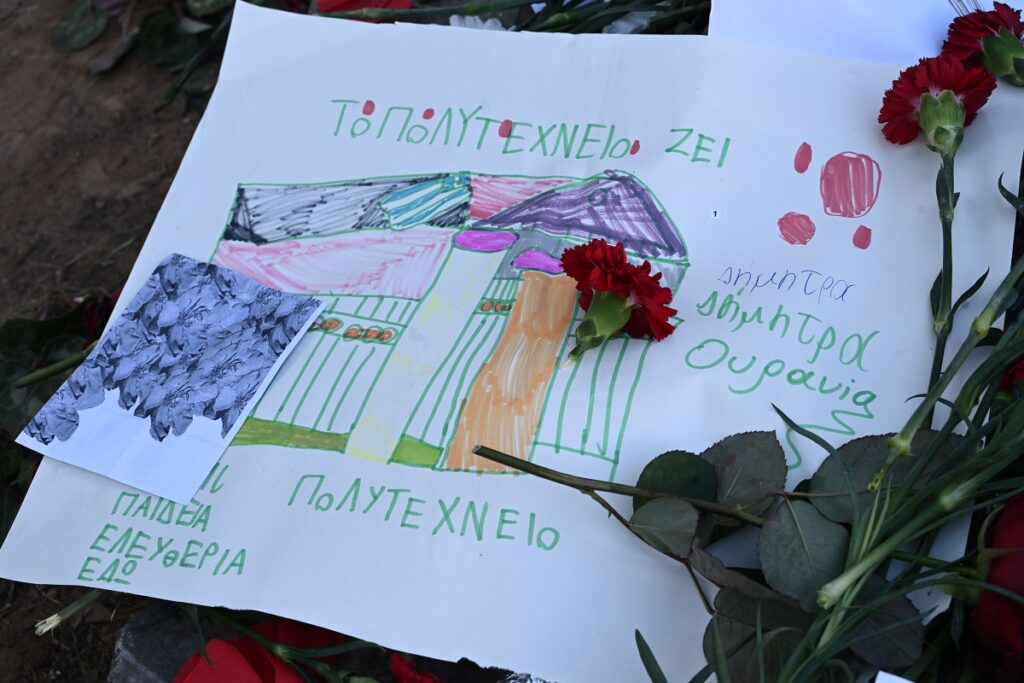 ΤΟ ΠΟΛΥΤΕΧΝΕΙΟ ΖΕΙ
1
Δήμητρα
Δήμητρα
Ουρανία
ΠΟΛΥΤΕΧΝΕΙΟ
ΠΑΙΔΕΙΑ
ΕΛΕΥΘΕΡΙΑ
ΕΔΩ